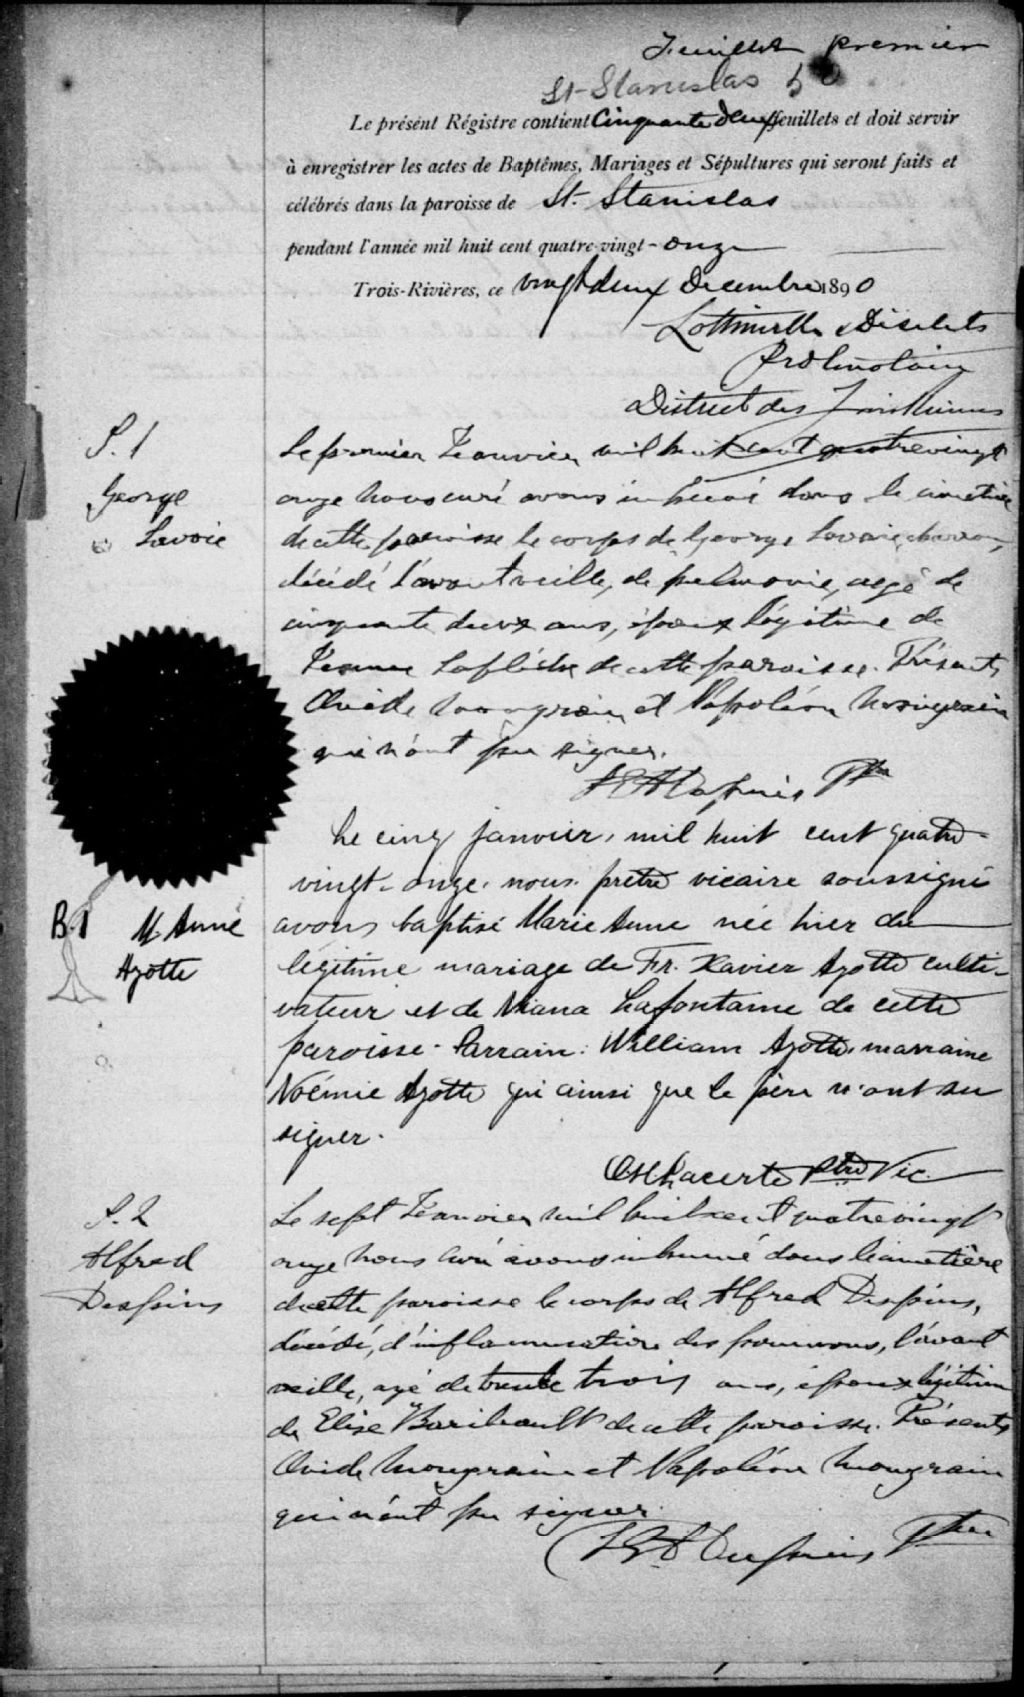 Feuillet premier
St-Stanislas
Le présent Régistre contient Cinquante deux feuillets et doit servir
à enregistrer les actes de Baptêmes, Mariages et Sépultures qui seront faits et
célébrés dans la paroisse de St. Stanislas
pendant l'année mil huit cent quatre-vingt-onze
Trois-Rivières, ce vingt deux Decembre 1890
Lottinville & Désilets
Protonotaire
District des Trois Rivieres
S. 1
George
Lavoie
Le premier Janvier mil huit cent quatre vingt
onze nous curé avons inhumé dans le cimetière
de cette paroisse le corps de George Lavoie,
décédé l'avant veille, de pulmonie, agé de
cinquante deux ans, époux légitime de
Laflèche de cette paroisse. Présents
Ovide Mongrain et Napoléon Mongrain
qui n'ont pu signer.
Ptre
B.1 M Anne
Ayotte
Le cinq janvier, mil huit cent quatre-
vingt-onze, nous prêtre vicaire soussigné
avons baptisé Marie Anne née hier du
légitime mariage de Fr. Xavier Ayotte culti-
vateur et de Lafontaine de cette
paroisse. Parrain: William Ayotte, marraine
Noémie Ayotte qui ainsi que le père n'ont su
signer.
Lacerte Ptre Vic.
S. 2
Alfred
Despins
Le sept Janvier mil huit cent quatre vingt
onze nous curé avons inhumé dans le cimetière
de cette paroisse le corps de Alfred Despins,
décédé, d'inflammation des poumons, l'avant
veille, agé de trente trois ans, époux légitime
de Elise Baribeault de cette paroisse. Présents
Ovide Mongrain et Napoléon Mongrain
qui n'ont pu signer.
Ptre